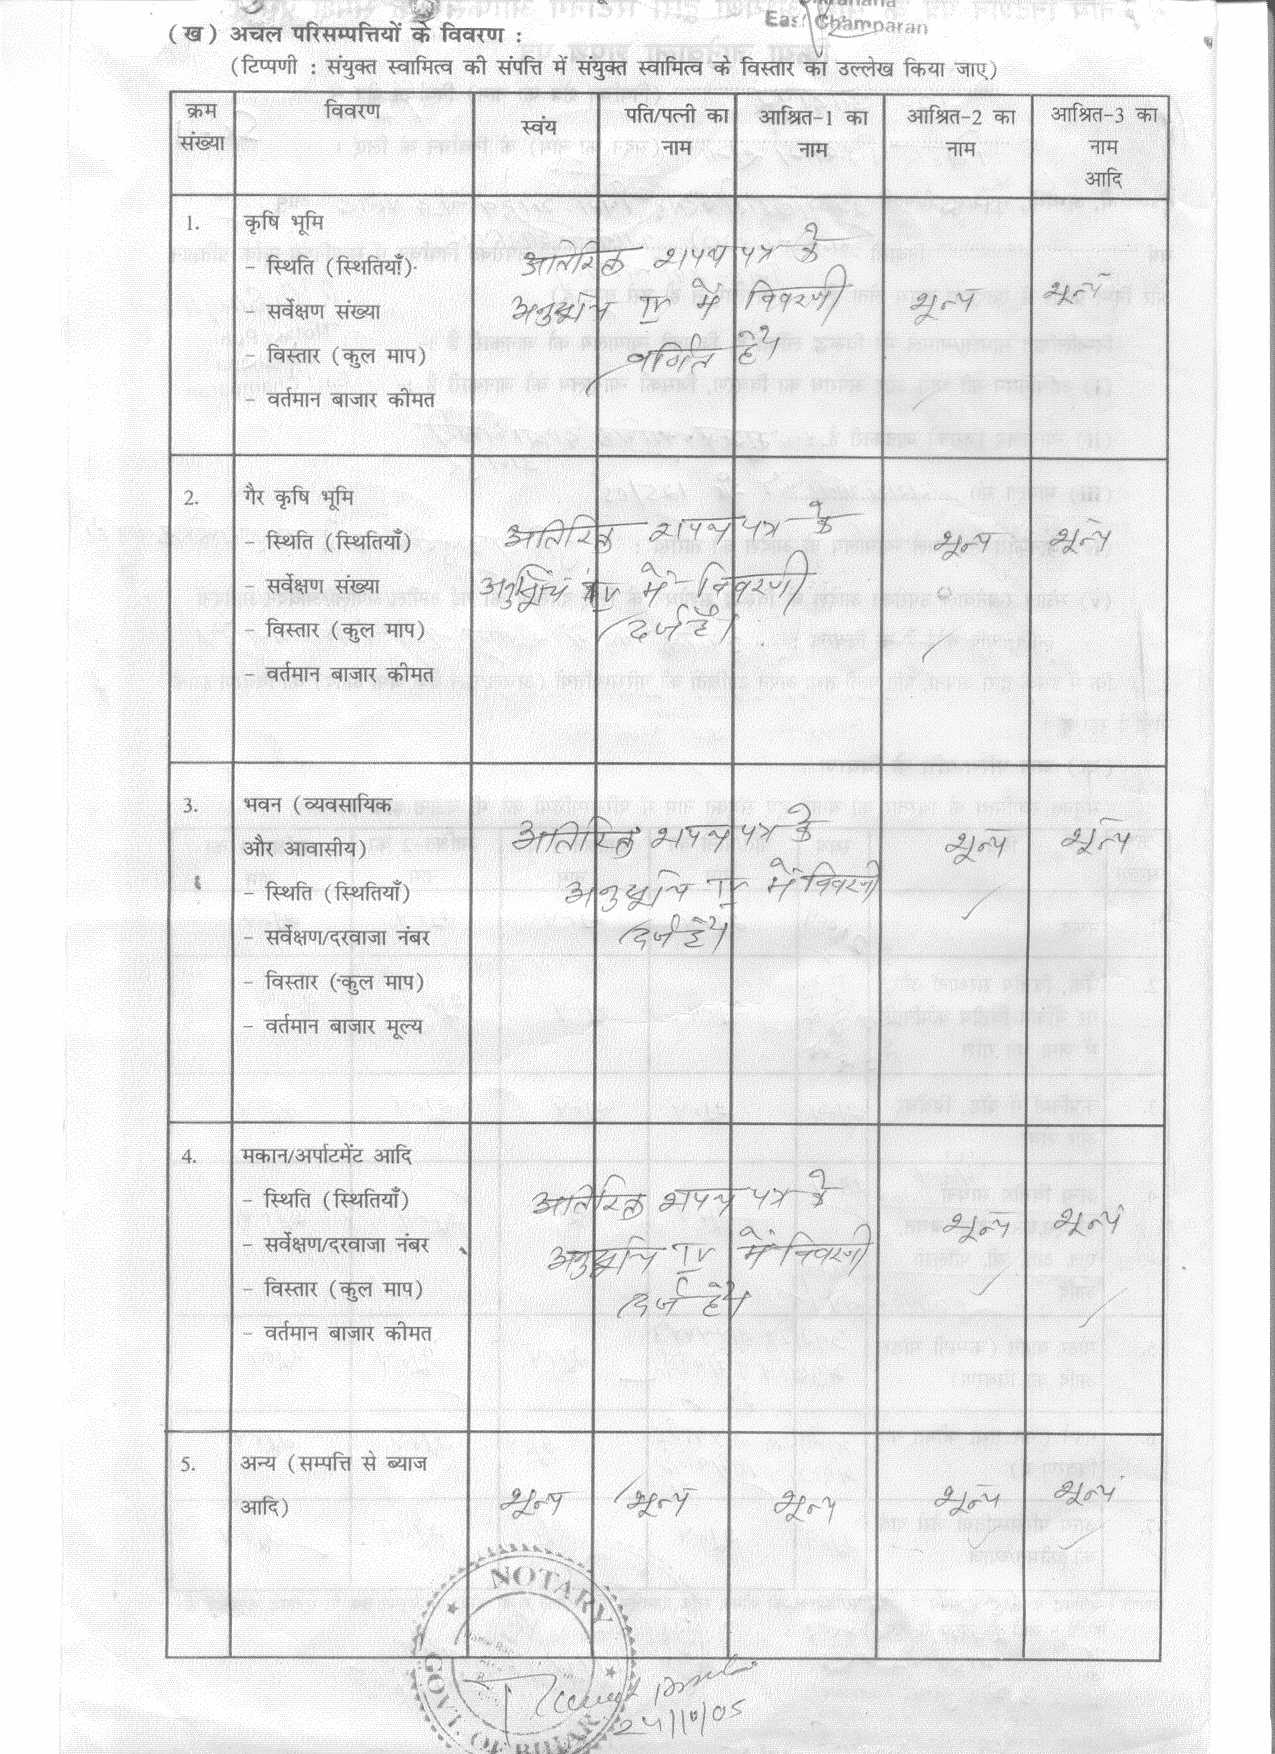 East Champaran
(ख) अचल परिसम्पत्तियों के विवरण :
(टिप्पणी : संयुक्त स्वामित्व की संपत्ति में संयुक्त स्वामित्व के विस्तार का उल्लेख किया जाए)
क्रम संख्या
विवरण
स्वंय
पति/पत्नी का नाम
आश्रित-1 का नाम
आश्रित-2 का नाम
आश्रित-3 का नाम आदि
1. कृषि भूमि
– स्थिति (स्थितियाँ)
– सर्वेक्षण संख्या
– विस्तार (कुल माप)
– वर्तमान बाजार कीमत
अतिरिक्त शपथ पत्र के
अनुसूचि IV में विवरणी
वर्णित है।
शून्य
शून्य
2. गैर कृषि भूमि
– स्थिति (स्थितियाँ)
– सर्वेक्षण संख्या
– विस्तार (कुल माप)
– वर्तमान बाजार कीमत
अतिरिक्त शपथ पत्र के
अनुसूचि IV में विवरणी
दर्ज है।
शून्य
शून्य
3. भवन (व्यवसायिक
और आवासीय)
– स्थिति (स्थितियाँ)
– सर्वेक्षण/दरवाजा नंबर
– विस्तार (कुल माप)
– वर्तमान बाजार मूल्य
अतिरिक्त शपथ पत्र के
अनुसूचि IV में विवरणी
दर्ज है।
शून्य
शून्य
4. मकान/अर्पाटमेंट आदि
– स्थिति (स्थितियाँ)
– सर्वेक्षण/दरवाजा नंबर
– विस्तार (कुल माप)
– वर्तमान बाजार कीमत
अतिरिक्त शपथ पत्र के
अनुसूचि IV में विवरणी
दर्ज है।
शून्य
शून्य
5. अन्य (सम्पत्ति से ब्याज
आदि)
शून्य
शून्य
शून्य
शून्य
शून्य
NOTARY
GOVT. OF BIHAR
24/10/05